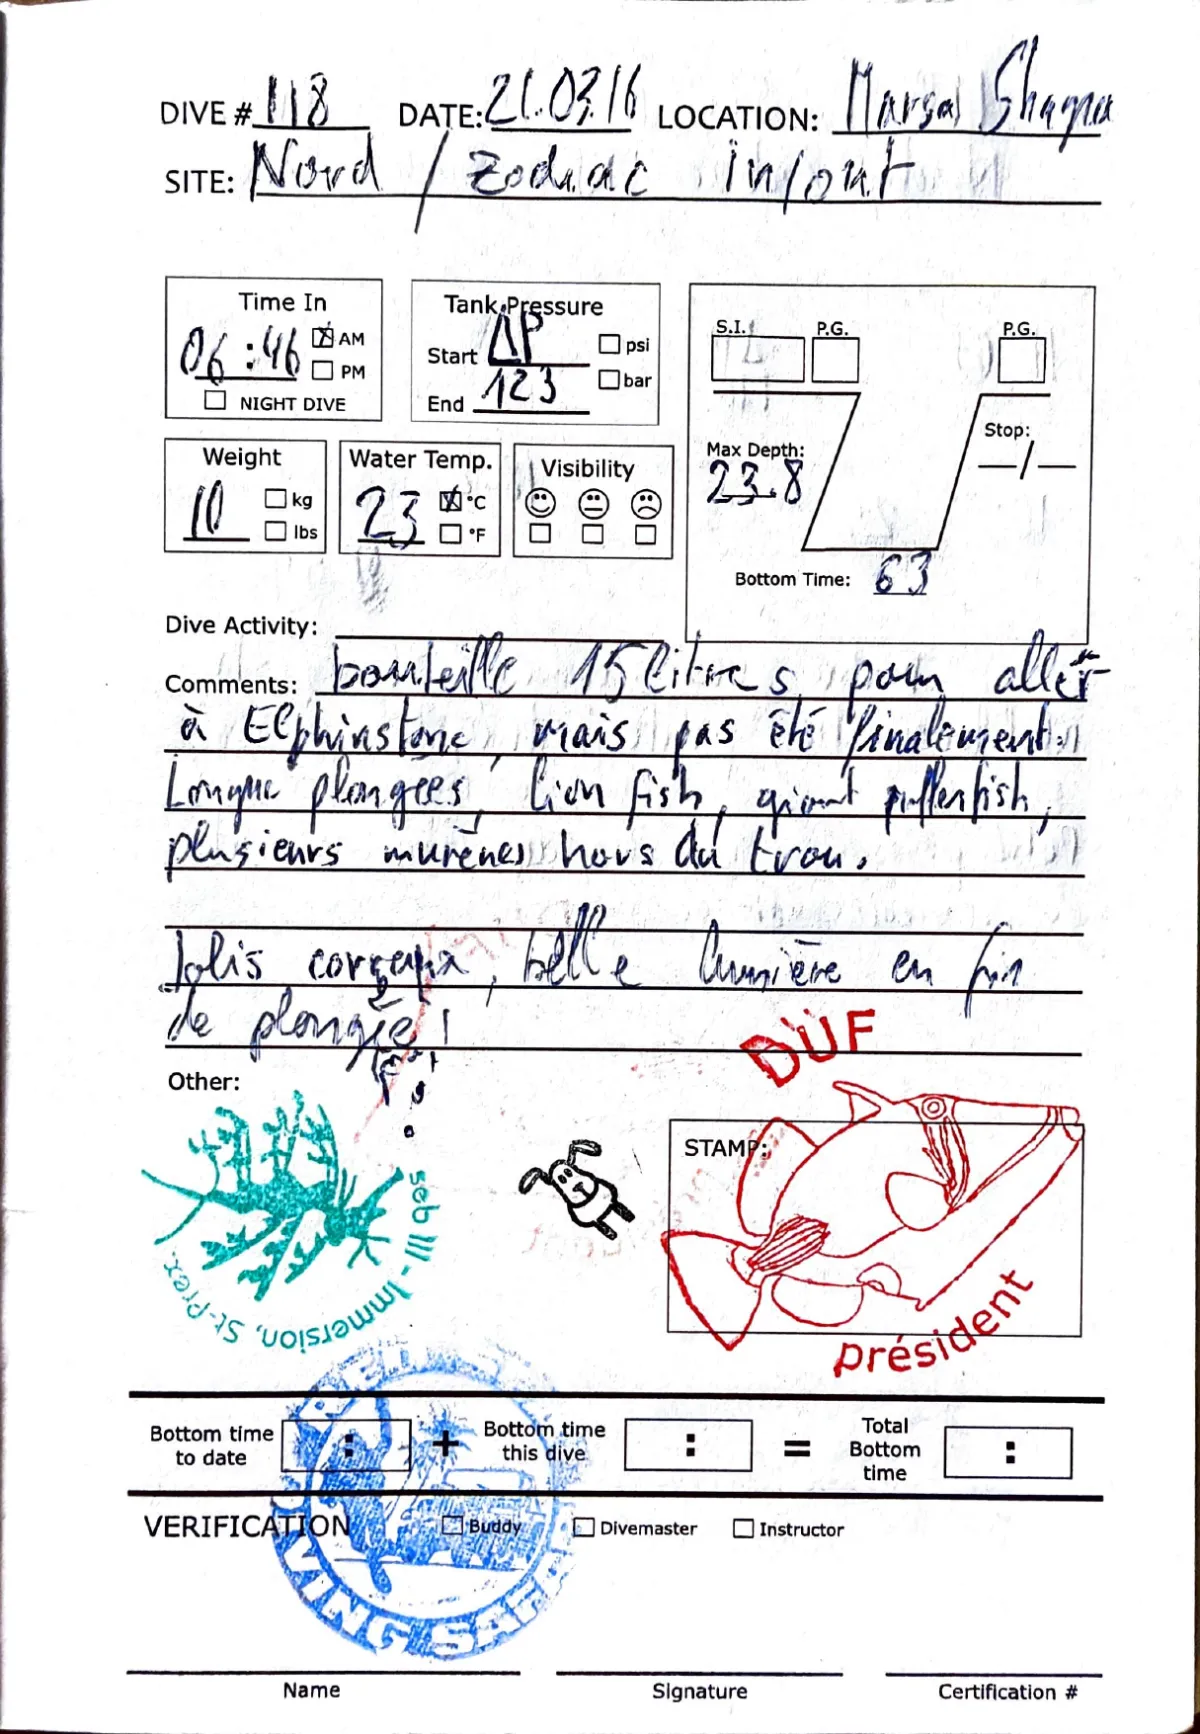 DIVE # 118 DATE: 21.03.16 LOCATION: Marsa Shagra
SITE: Nord / Zodiac in/out
Time In
06:46 AM
PM
NIGHT DIVE
Tank Pressure
Start ΔP psi
End 123 bar
S.I. P.G. P.G.
Weight
10 kg
lbs
Water Temp.
23 °C
°F
Visibility
Max Depth:
23.8
Stop:
Bottom Time: 63
Dive Activity:
Comments: bouteille 15 litres pour aller
à Elphinstone, mais pas été finalement.
Longue plongées, lion fish, giant pufferfish,
plusieurs murènes hors du trou.
Jolis coraux, belle lumière en fin
de plongée!
Other:
DÜF
STAMP:
président
seb III - Immersion, St-Prex.
Bottom time to date : + Bottom time this dive : = Total Bottom time :
VERIFICATION Buddy Divemaster Instructor
VING SAFA
Name Signature Certification #